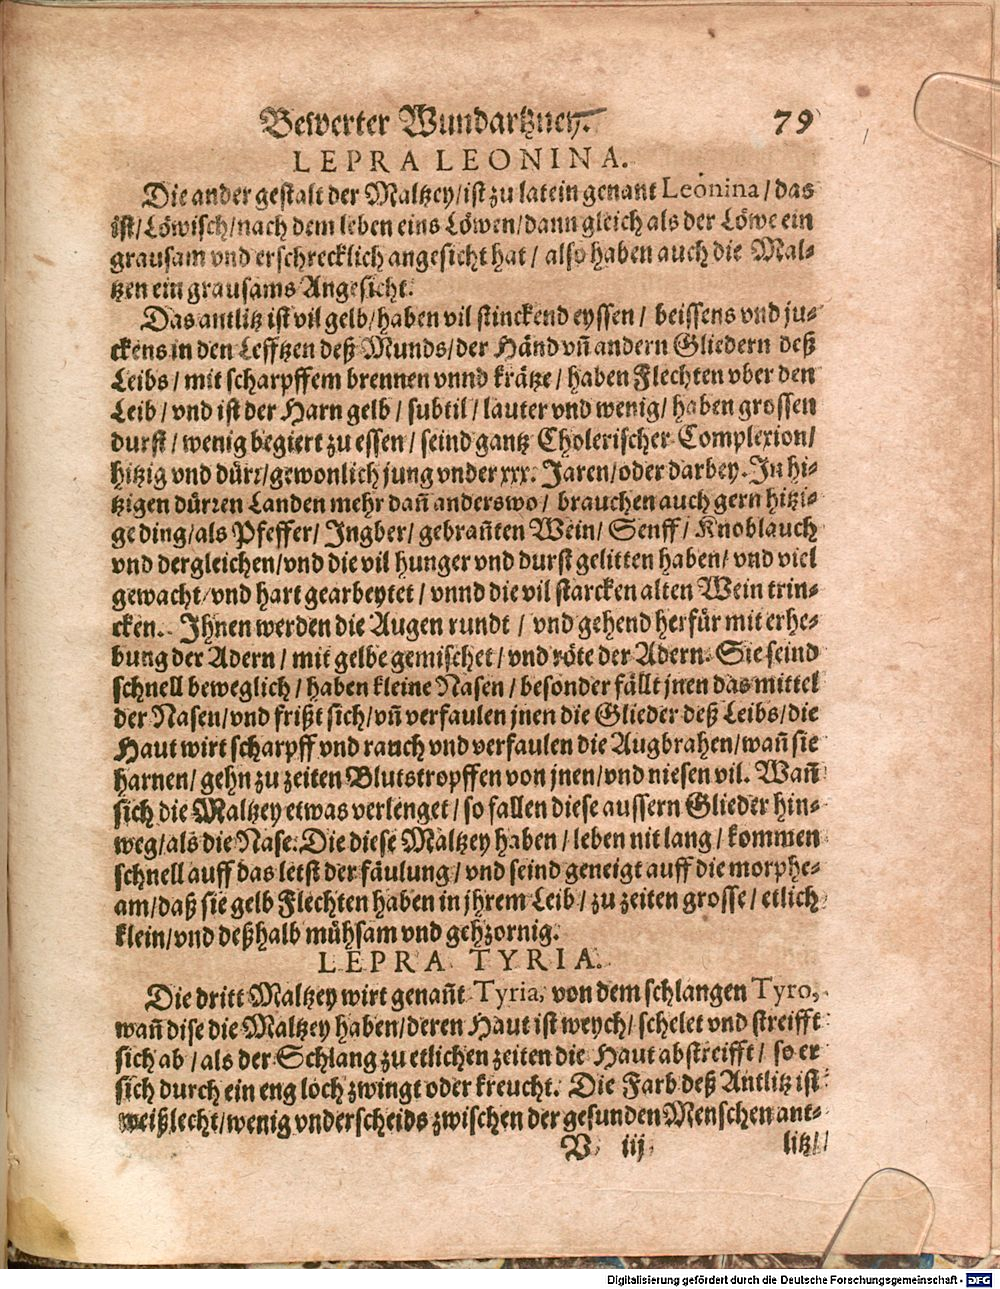 Bewerter Wundartzney. 79
LEPRA LEONINA.
Die ander gestalt der Maltzey/ist zu latein genant Leonina/das
ist/Löwisch/nach dem leben eins Löwen/dann gleich als der Löwe ein
grausam vnd erschrecklich angesicht hat/ also haben auch die Mal-
tzen ein grausams Angesicht.
Das antlitz ist vil gelb/haben vil stinckend eyssen/ beissens vnd ju-
ckens in den Lefftzen deß Munds/der Händ vñ andern Gliedern deß
Leibs/ mit scharpffem brennen vnnd krätze/ haben Flechten vber den
Leib/ vnd ist der Harn gelb/ subtil/ lauter vnd wenig/ haben grossen
durst/ wenig begiert zu essen/ seind gantz Cholerischer Complexion/
hitzig vnd dürr/gewonlich jung vnder xxx. Jaren/oder darbey. In hi-
tzigen dürren Landen mehr dañ anderswo/ brauchen auch gern hitzi-
ge ding/als Pfeffer/ Ingber/ gebrañten Wein/ Senff/ Knoblauch
vnd dergleichen/vnd die vil hunger vnd durst gelitten haben/ vnd viel
gewacht/vnd hart gearbeytet/ vnnd die vil starcken alten Wein trin-
cken. Ihnen werden die Augen rundt/ vnd gehend herfür mit erhe-
bung der Adern/ mit gelbe gemischet/ vnd röte der Adern. Sie seind
schnell beweglich/ haben kleine Nasen/ besonder fällt jnen das mittel
der Nasen/vnd frißt sich/vñ verfaulen jnen die Glieder deß Leibs/die
Haut wirt scharpff vnd rauch vnd verfaulen die Augbrahen/wañ sie
harnen/ gehn zu zeiten Blutstropffen von jnen/vnd niesen vil. Wañ
sich die Maltzey etwas verlenget/ so fallen diese aussern Glieder hin-
weg/als die Nase. Die diese Maltzey haben/ leben nit lang/ kommen
schnell auff das letst der fäulung/ vnd seind geneigt auff die morphe-
am/daß sie gelb Flechten haben in jhrem Leib/ zu zeiten grosse/ etlich
klein/vnd deßhalb mühsam vnd gehzornig.
LEPRA TYRIA.
Die dritt Maltzey wirt genañt Tyria, von dem schlangen Tyro,
wañ dise die Maltzey haben/deren Haut ist weych/ schelet vnd streifft
sich ab/ als der Schlang zu etlichen zeiten die Haut abstreifft/ so er
sich durch ein eng loch zwingt oder kreucht. Die Farb deß Antlitz ist
weißlecht/wenig vnderscheids zwischen der gesunden Menschen ant-
V iij litz/
Digitalisierung gefördert durch die Deutsche Forschungsgemeinschaft - DFG